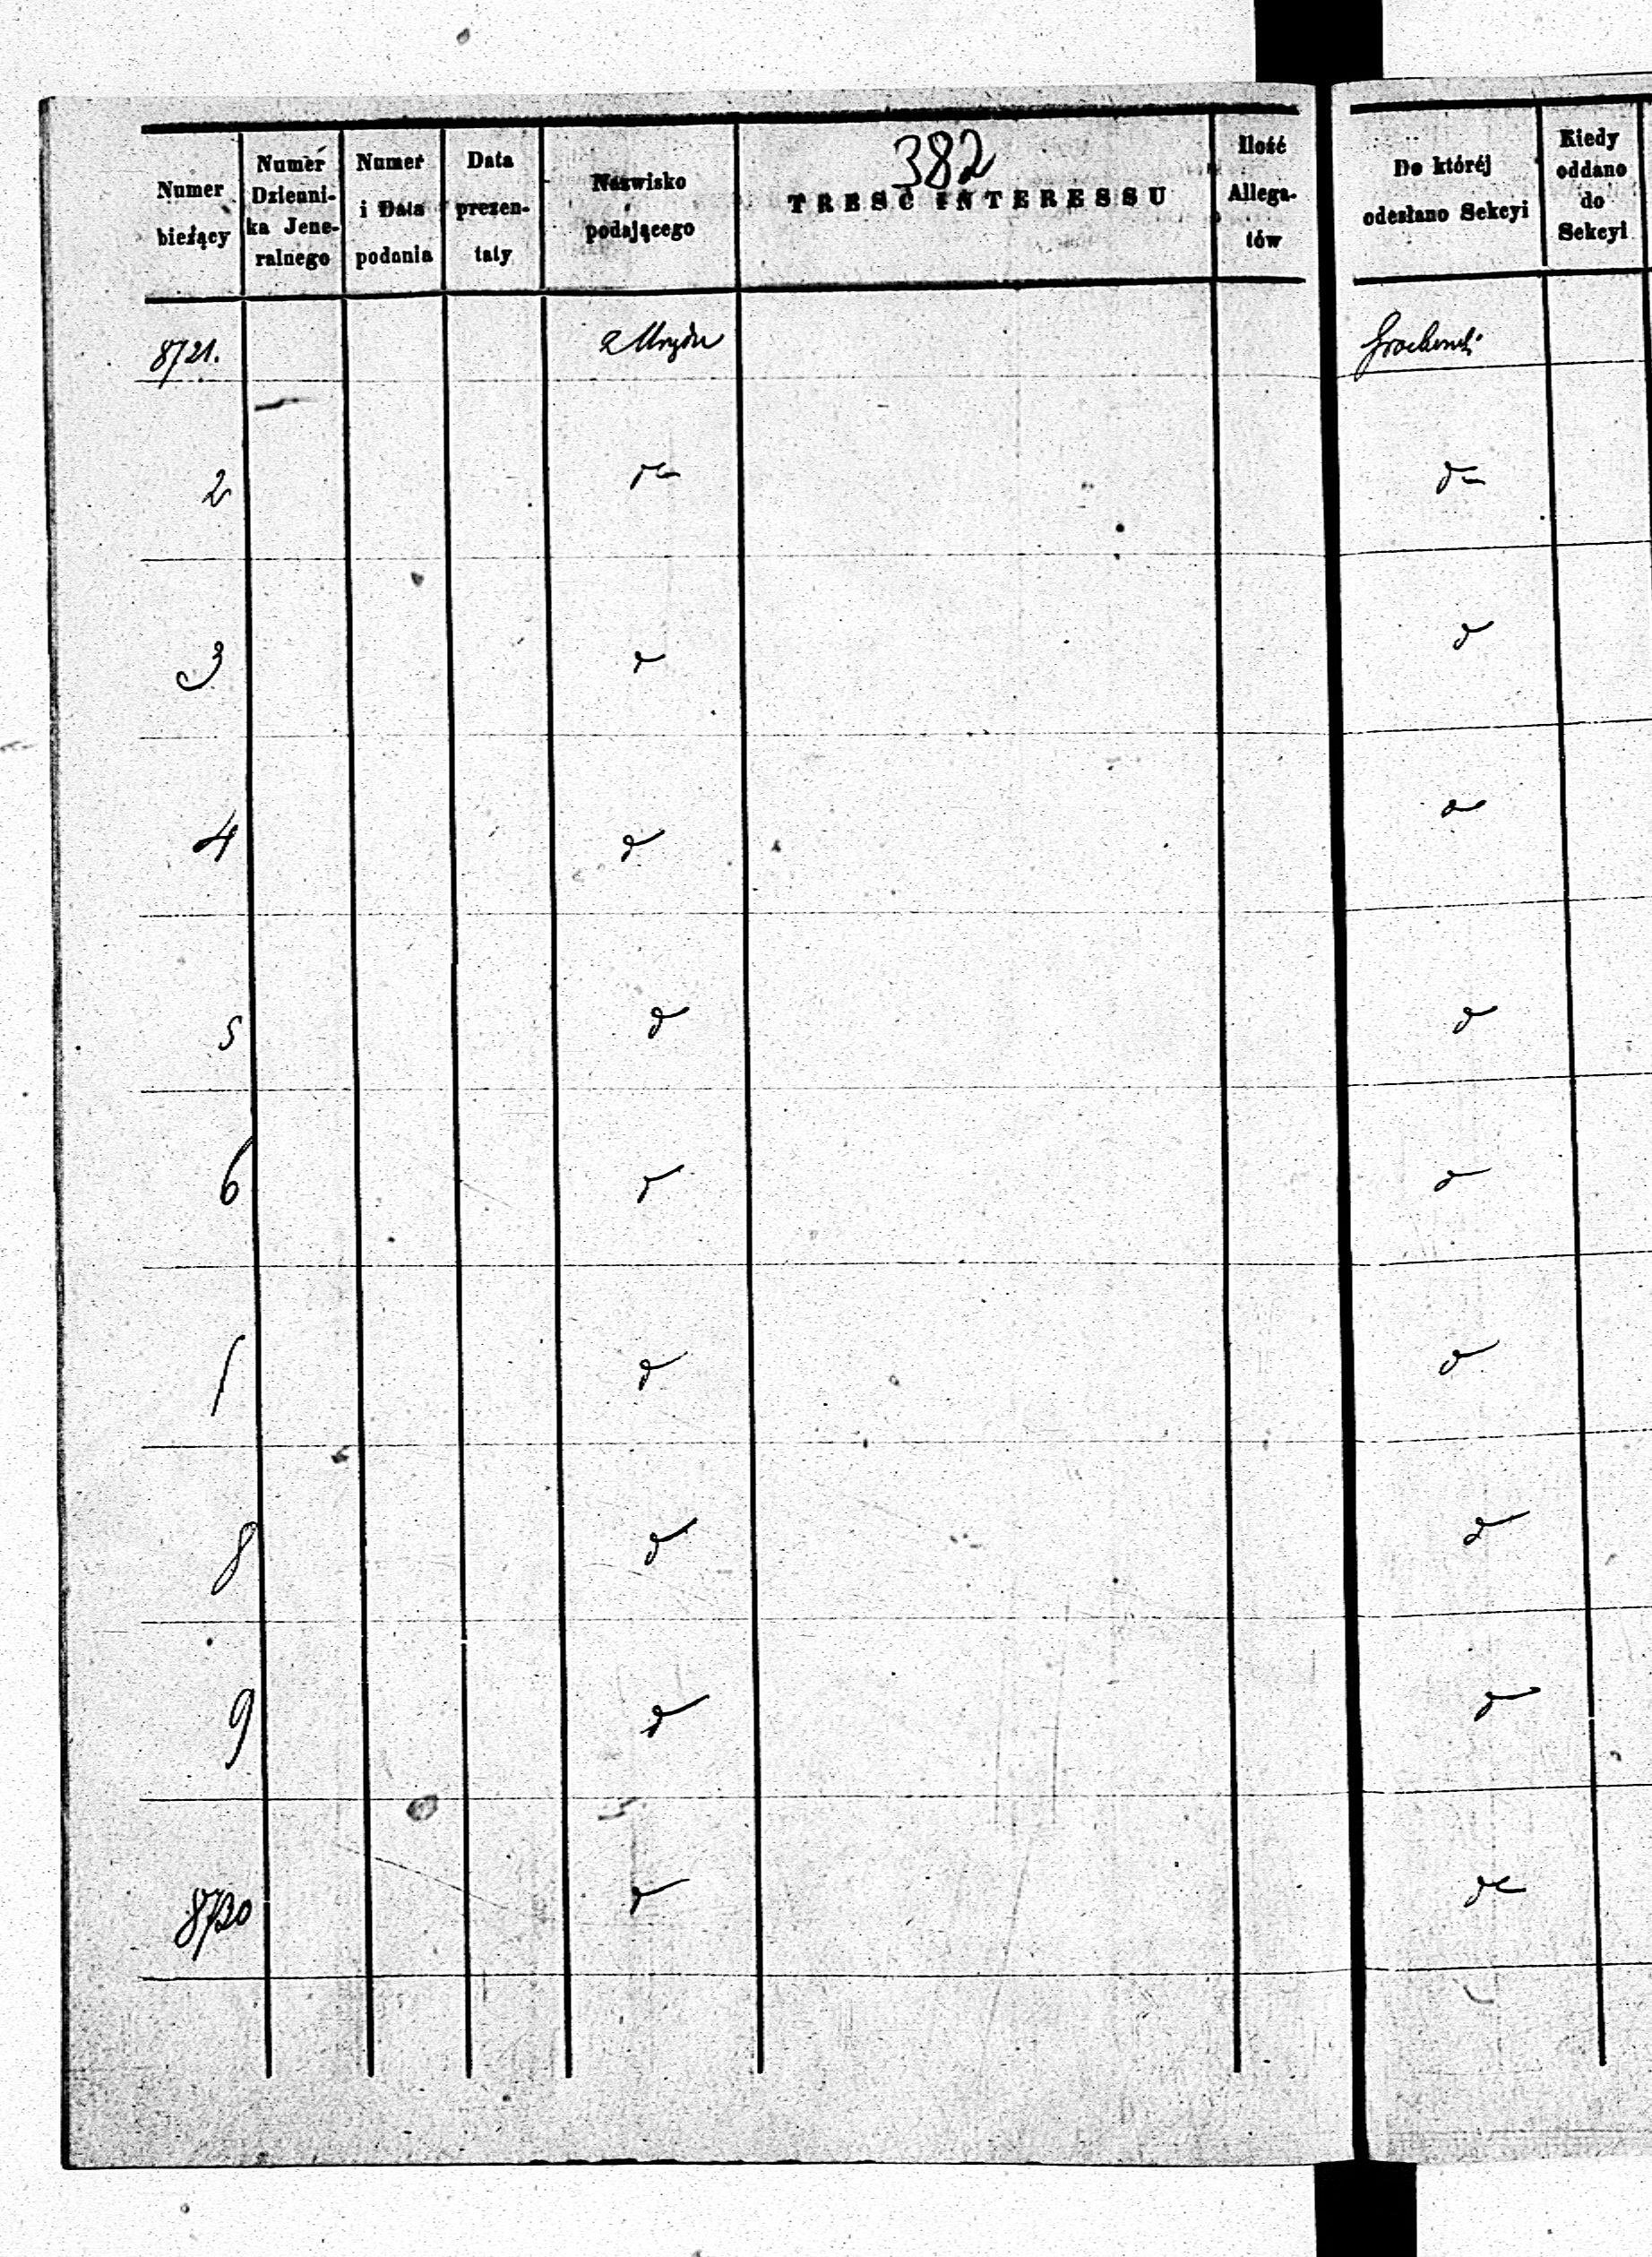 382
Numer bieżący
Numer Dzienni- ka Jene- ralnego
Numer i Data podania
Data prezen- taty
Nazwisko podającego
TREŚĆ INTERESSU
Ilość Allega- tów
Do któréj odesłano Sekcyi
Kiedy oddano do Sekcyi
8721. z Urzędu
2 dto dto
3 d d
4 d d
5 d d
6 d d
7 d d
8 d d
9 d d
8730 d dto